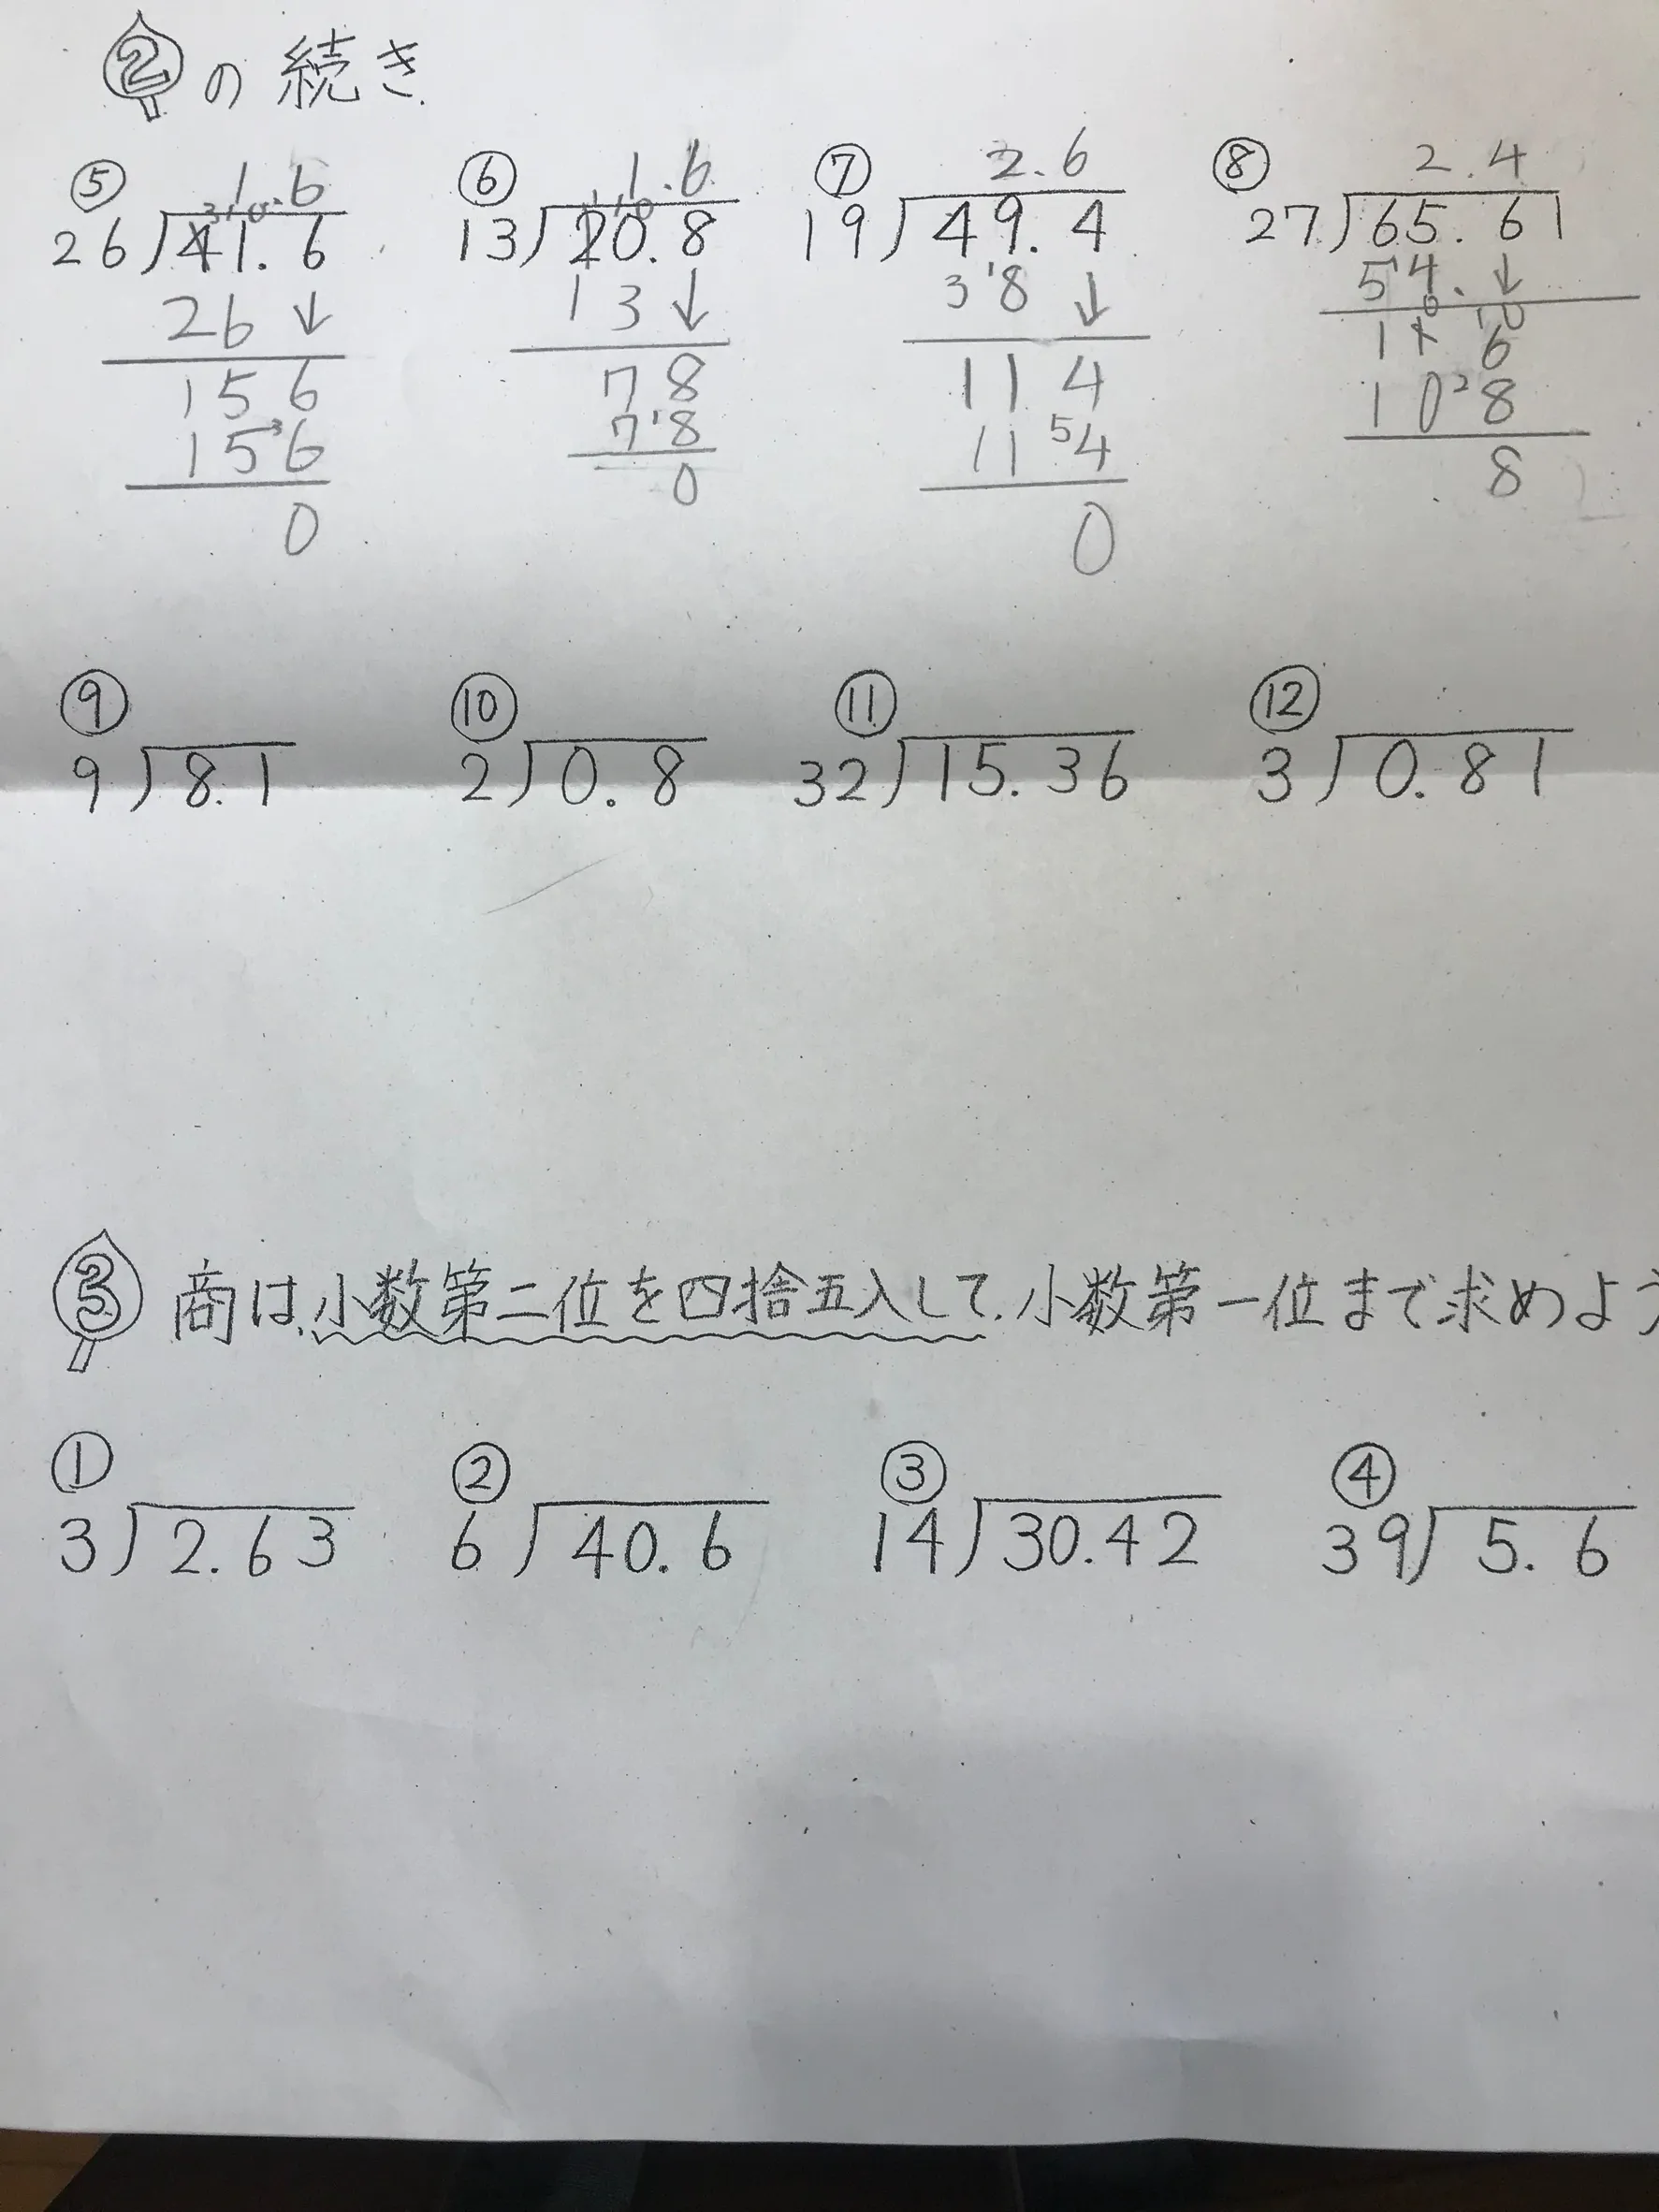 2 の 続き
⑤ 1.6 ⑥ 1.6 ⑦ 2.6 ⑧ 2.4
3 10 1 10
26)41.6 13)20.8 19)49.4 27)65.61
26↓ 13↓ 3¹8↓ 5¹4.↓
0 10
156 78 114 11 6
15³6 7¹8 11⁵4 10²8
0 0 0 8
⑨ ⑩ ⑪ ⑫
9)8.1 2)0.8 32)15.36 3)0.81
3 商は、小数第二位を四捨五入して、小数第一位まで求めよう
① ② ③ ④
3)2.63 6)40.6 14)30.42 39)5.6